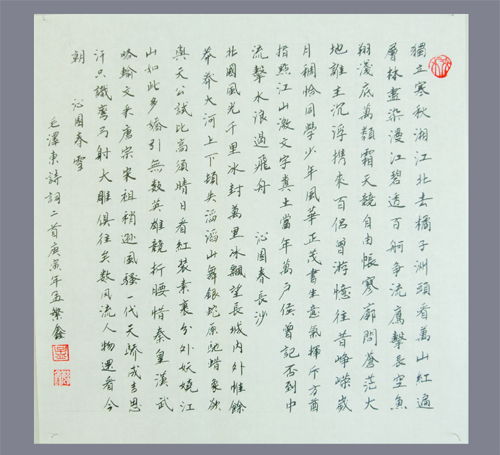 獨立寒秋湘江北去橘子洲頭看萬山紅遍
層林盡染漫江碧透百舸争流鷹擊長空魚
翔淺底萬類霜天競自由悵寥廓問蒼茫大
地誰主沉浮携來百侣曾游憶往昔崢嶸歲
月稠恰同學少年風華正茂書生意氣揮斥方遒
指點江山激文字糞土當年萬户侯曾記否到中
流擊水浪遏飛舟 沁園春長沙
北國風光千里冰封萬里冰飄望長城内外惟餘
莽莽大河上下頓失滔滔山舞銀蛇原馳蜡象欲
與天公試比高須晴日看紅裝素裹分外妖嬈江
山如此多嬌引無數英雄競折腰惜秦皇漢武
略輸文采唐宗宋祖稍遜風騷一代天驕成吉思
汗只識彎弓射大雕俱往矣數風流人物還看今
朝 沁園春雪
毛澤東詩詞二首庚寅年孟繁鑫